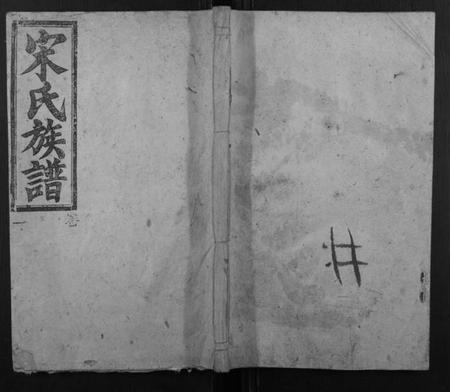 宋氏族譜
卷一
井